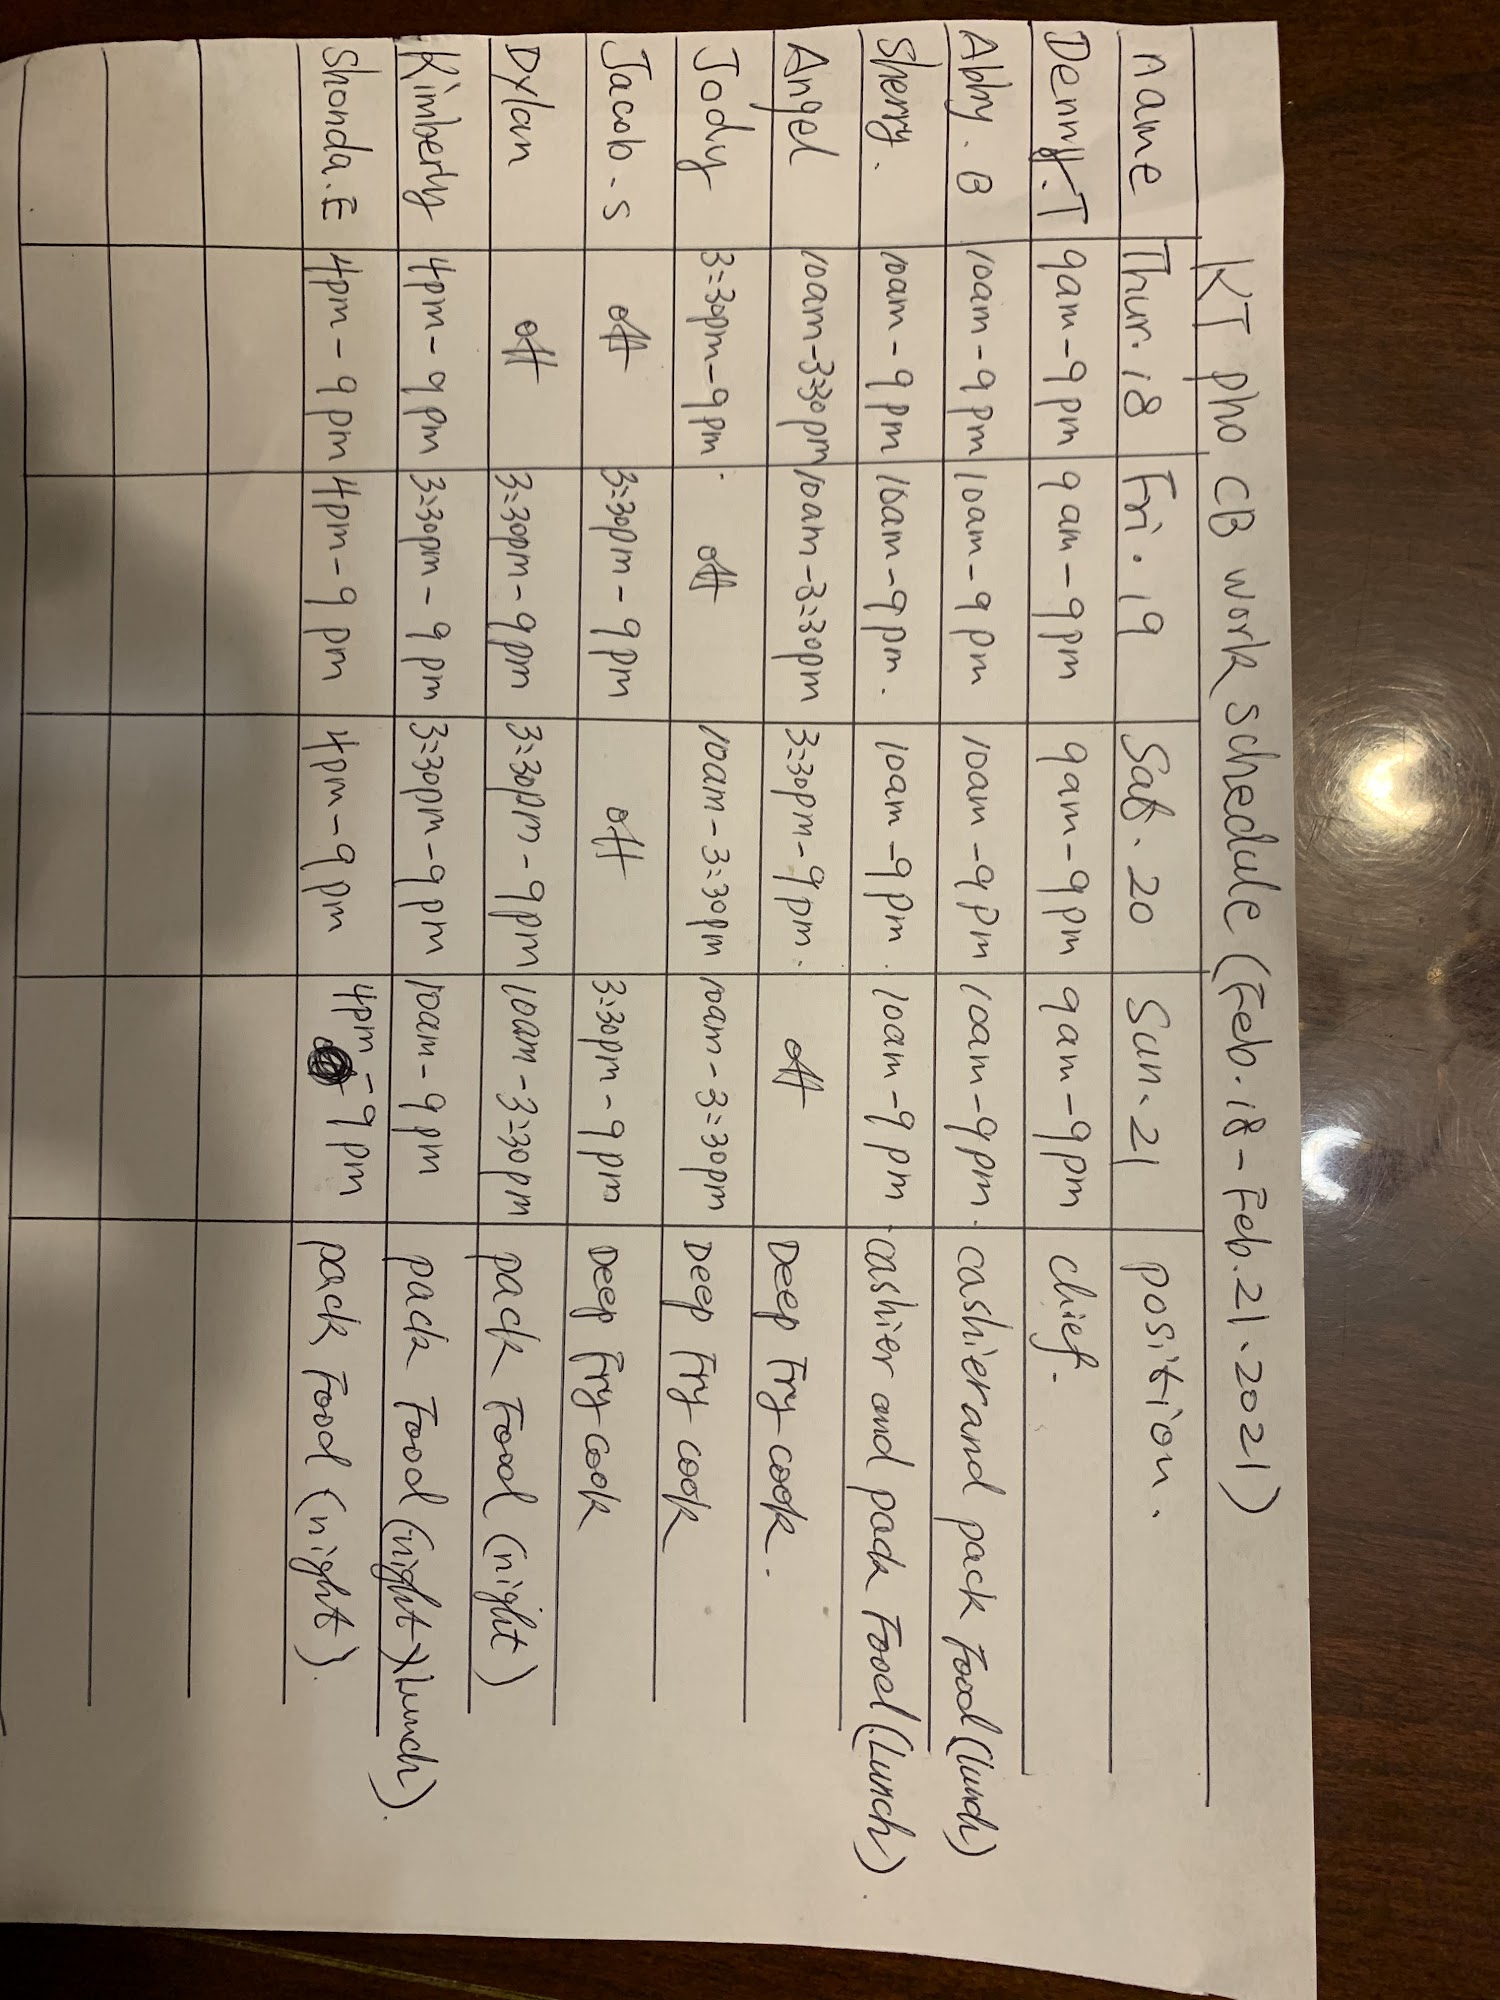 KT pho CB work schedule (Feb.18-Feb.21.2021)
name Thur.18 Fri.19 Sat.20 Sun.21 position.
Denny.T 9am-9pm 9am-9pm 9am-9pm 9am-9pm chief.
Abby.B 10am-9pm 10am-9pm 10am-9pm 10am-9pm. cashier and pack Food (lunch)
Sherry. 10am-9pm 10am-9pm. 10am-9pm. 10am-9pm cashier and pack Food (Lunch).
Angel 10am-3:30pm 10am-3:30pm 3:30pm-9pm. off Deep Fry cook.
Jody 3:30pm-9pm. off 10am-3:30pm 10am-3:30pm Deep Fry cook
Jacob.S off 3:30pm-9pm off 3:30pm-9pm Deep Fry cook
Dylan off 3:30pm-9pm 3:30pm-9pm 10am-3:30pm pack Food (night)
Kimberly 4pm-9pm 3:30pm-9pm 3:30pm-9pm 10am-9pm pack Food (night)(Lunch).
Shonda.E 4pm-9pm 4pm-9pm 4pm-9pm 4pm-9pm pack Food (night).